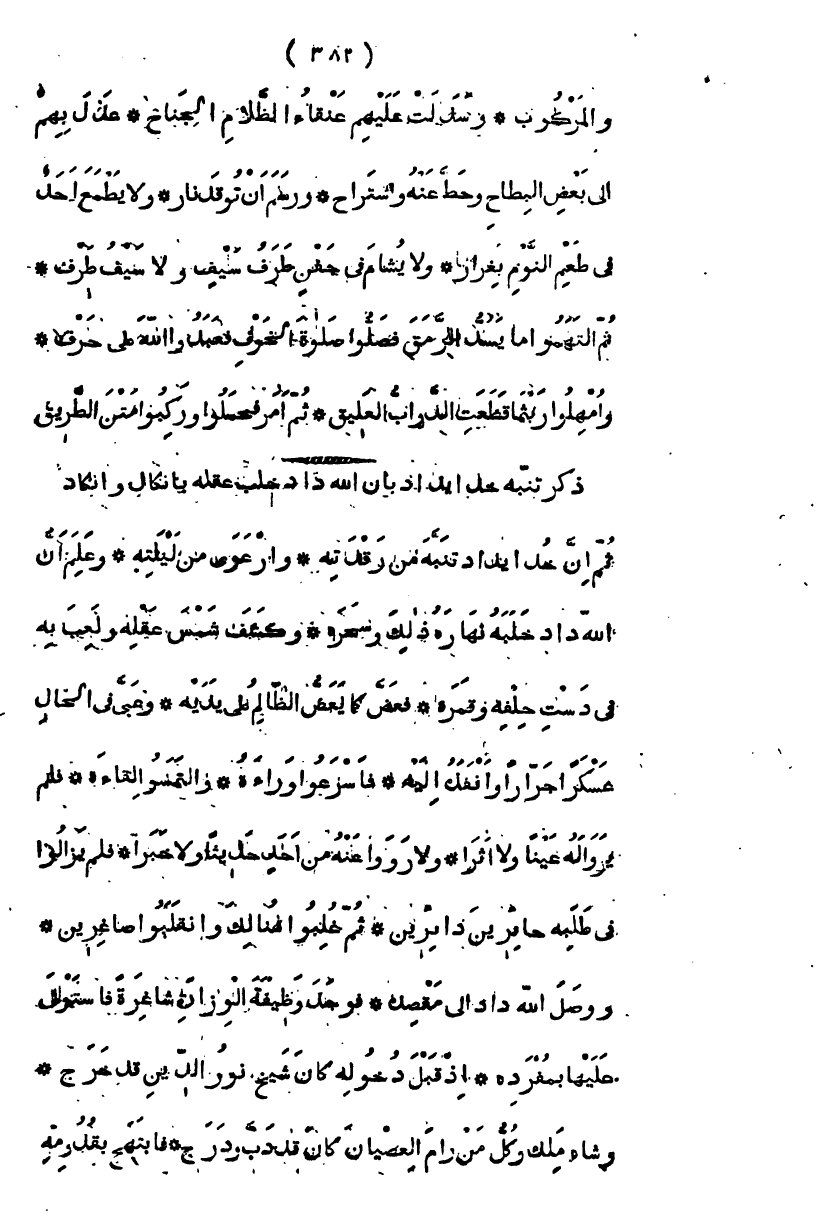 ( ٣٨٢ )
والمَرْكُوب * وَسَدَلَتْ عَلَيْهِم عَنْقَاءُ الظَّلَامِ الجَنَاحَ * عَدَلَ بِهِمْ
الى بَعْضِ البِطَاحِ وحَطَّ عَنْهُ واسْتَراح * ورَسَمَ اَنْ تُوقَدَ نار * ولا يَطْمَعَ اَحَدٌ
فى طَعْمِ النَّوْمِ بِغِرار * ولا يُشامَ فى جَفْنٍ طَرَفُ سَيْفٍ ولا سَيْفُ طَرْف *
ثُمّ الْتَهَمُوا ما يَسُدُّ الرَّمَقَ فصَلَّوا صَلٰوةَ الخَوْفِ فعَبَدُوا اللّٰهَ على حَرْف *
واُمْهِلُوا رَيْثَما قَطَعَتِ الدَّوابُّ العَلِيق * ثُمّ اَمَرَ فحَمَلُوا ورَكِبُوا مَتْنَ الطَّرِيق
ذكر تنبّه خدايداد بان الله داد خلب عقله بانكال وانكاد
ثُمّ اِنَّ خُدايداد تَنَبَّهَ مِن رَقْدَتِه * وارْعَوَى مِن لَيْلَتِه * وعَلِمَ اَنَّ
اللّه داد خَلَبَهُ نَهارَهُ ذٰلِكَ وسَحَرَه * وكَسَفَ شَمْسَ عَقْلِه ولَعِبَ بِه
فى دَسْتِ خِلْفِه وقَمَرَه * فعَضَّ كما يَعَضُّ الظّالِمُ على يَدَيْه * وعَبَّى فى الحالِ
عَسْكَرًا جَرّارًا وأنْفَذَ اِلَيْه * فاَسْرَعُوا وَراءَهُ * والتَمَسُوا لِقاءَه * فلم
يَرَوا لَهُ عَيْنًا ولا اَثَرًا * ولا رَوَوا عَنْهُ مِن اَحَدٍ حَدِيثًا ولا خَبَرًا * فلم يَزالُوا
فى طَلَبِه حائِرِينَ دائِرِين * ثُمّ غُلِبُوا هُنالِكَ وانْقَلَبُوا صاغِرِين *
ووصَلَ اللّه داد الى مَقْصِدِه * فوجَدَ وَظِيفَةَ الوِزارَةِ شاغِرَةً فاسْتَوْلَى
عَلَيْها بمُفْرَدِه * اِذْ قَبْلَ دُخُولِه كانَ شَيْخ نُورُ الدِّينِ قد خَرَج *
وشاه مَلِك وكُلُّ مَنْ رامَ العِصْيانَ كانَ قد دَبَّ ودَرَج * فابْتَهَجَ بقُدُومِه